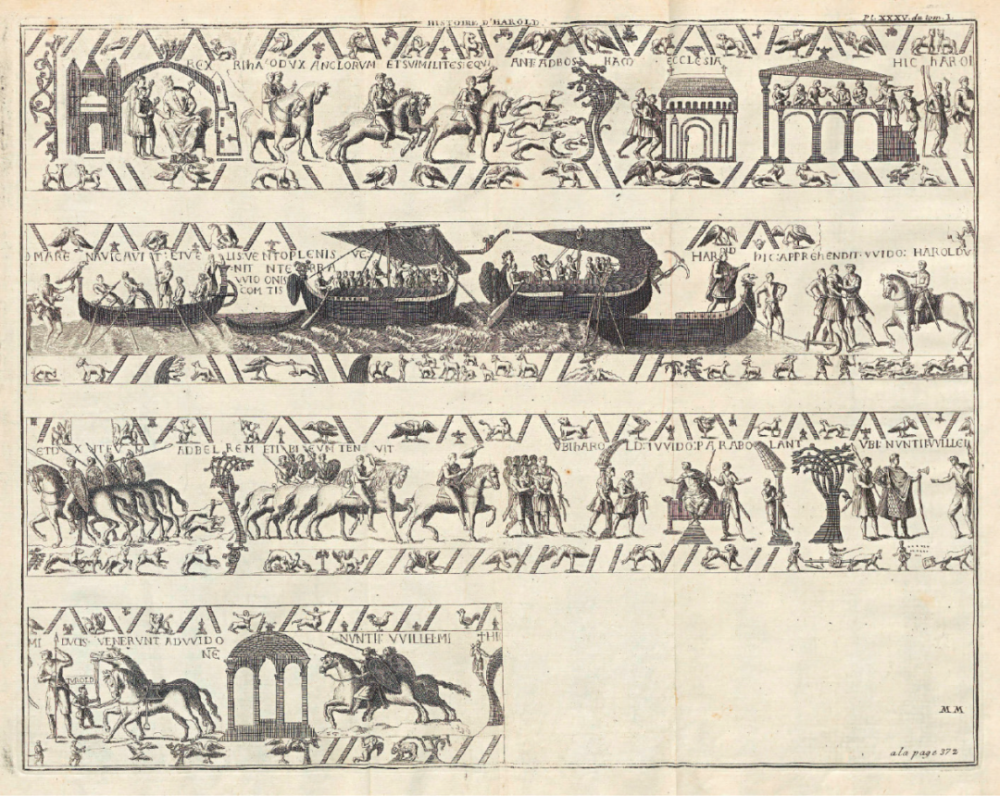 HISTOIRE D'HAROLD.
Pl. XXXV. du tom. I.
REX HAROLD DVX ANGLORVM ET SVI MILITES EQVI ANT AD BOS HAM ECCLESIA HIC HAROL
MARE NAVIGAVIT ET VE LIS VENTO PLENIS VE
NIT IN TERRA
VVIDONIS
COMITIS
HAROLD
HIC: APPREHENDIT: VVIDO: HAROLDV
ET DVXIT EVM AD BEL REM ET IBI EVM TEN VIT
VBI HARO LD: 7 VVIDO: PARABO LANT
VBI NVNTII VVILLEL
MI DVCIS VENERVNT AD VVIDO
NE
TVROLD
NVNTII VVILLELMI
HIC
MM
a la page 372